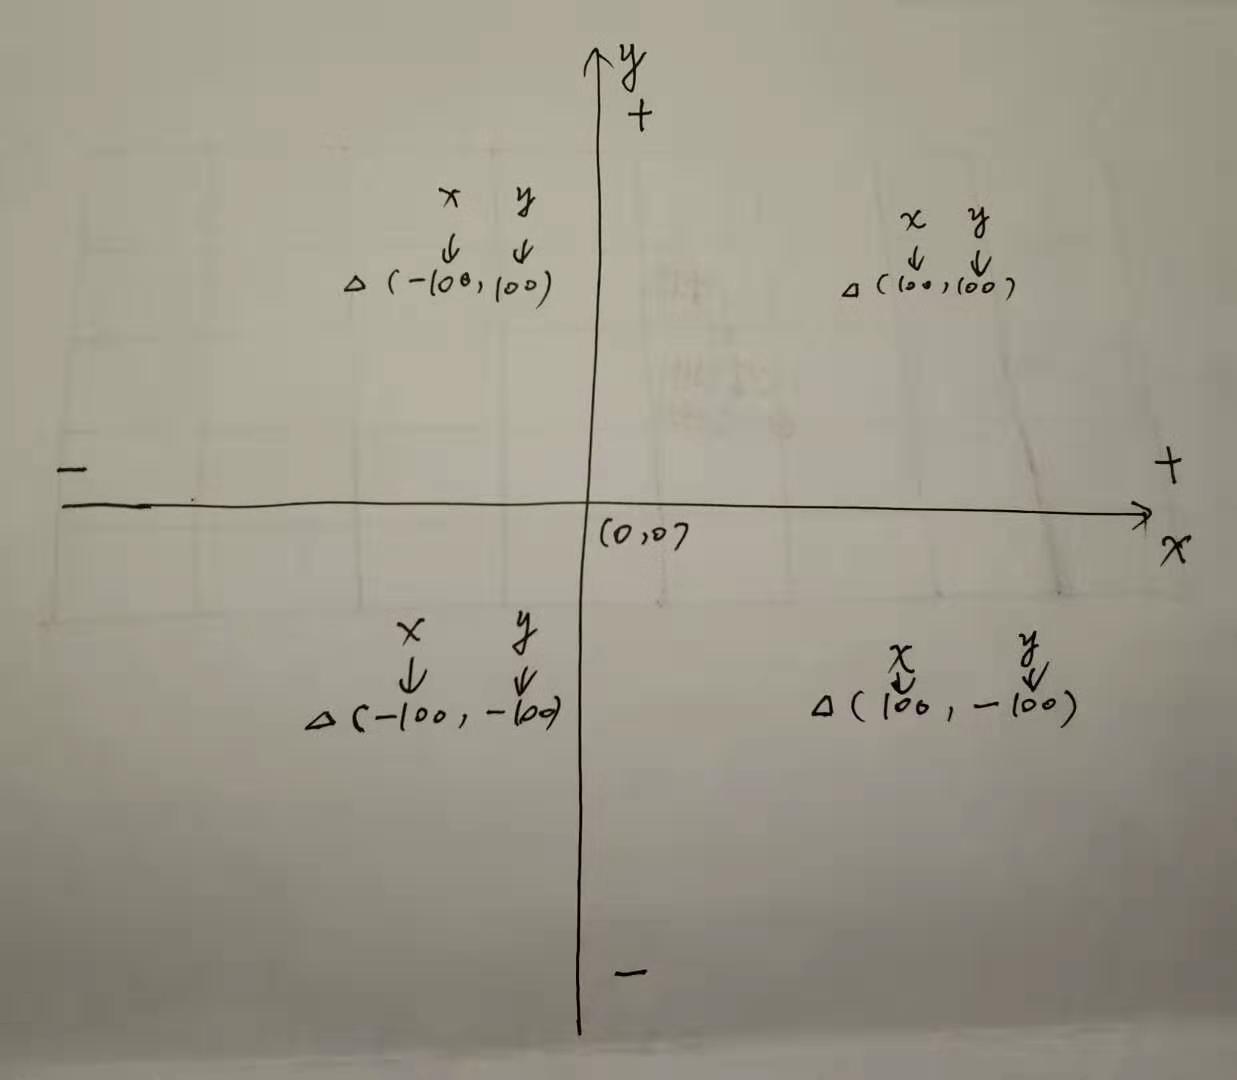 y
+
x y
↓ ↓
△ (-100, 100)
x y
↓ ↓
△ (100, 100)
-
+
(0,0)
x
x y
↓ ↓
△ (-100, -100)
x y
↓ ↓
△ (100, -100)
-